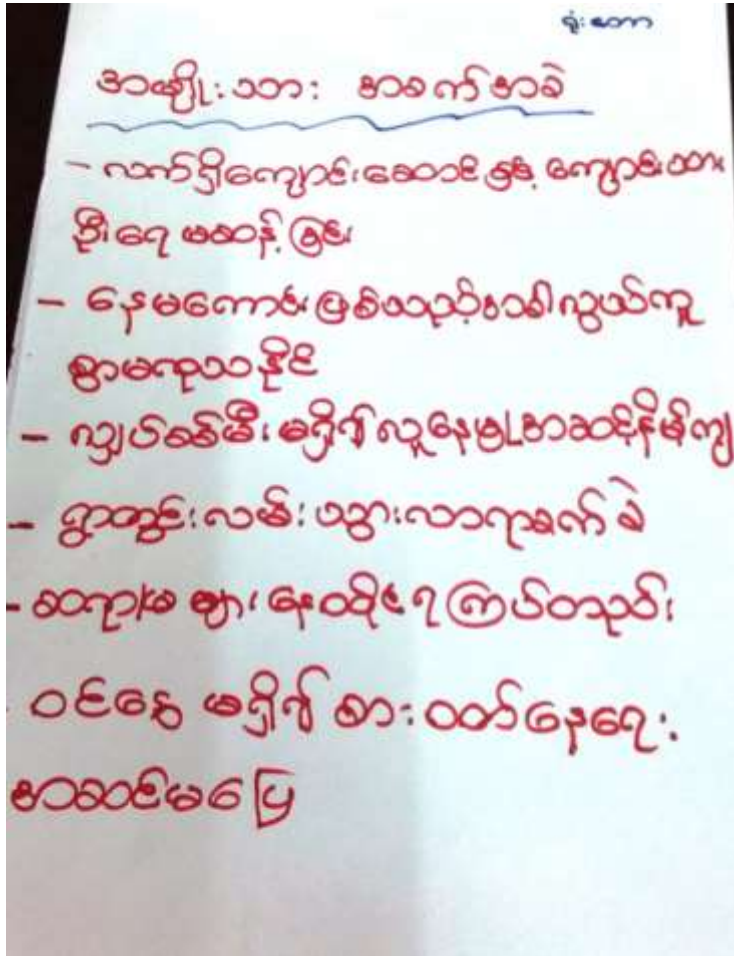 ရှုံးတော
အမျိုးသား အခက်အခဲ
- လက်ရှိကျောင်းဆောင်နှင့် ကျောင်းသား
ဦးရေ မဆန့်ခြင်း
- နေမကောင်းဖြစ်သည့်အခါလွယ်ကူ
စွာမကုသနိုင်
- လျှပ်စစ်မီး မရှိ၍လူနေမှုအဆင့်နိမ့်ကျ
- ရွာတွင်းလမ်း သွားလာရာခက်ခဲ
- ဆရာ/မ များ နေထိုင်ရ ကြပ်တည်း
- ဝင်ငွေ မရှိ၍ စား ဝတ်နေရေး
အဆင်မပြေ